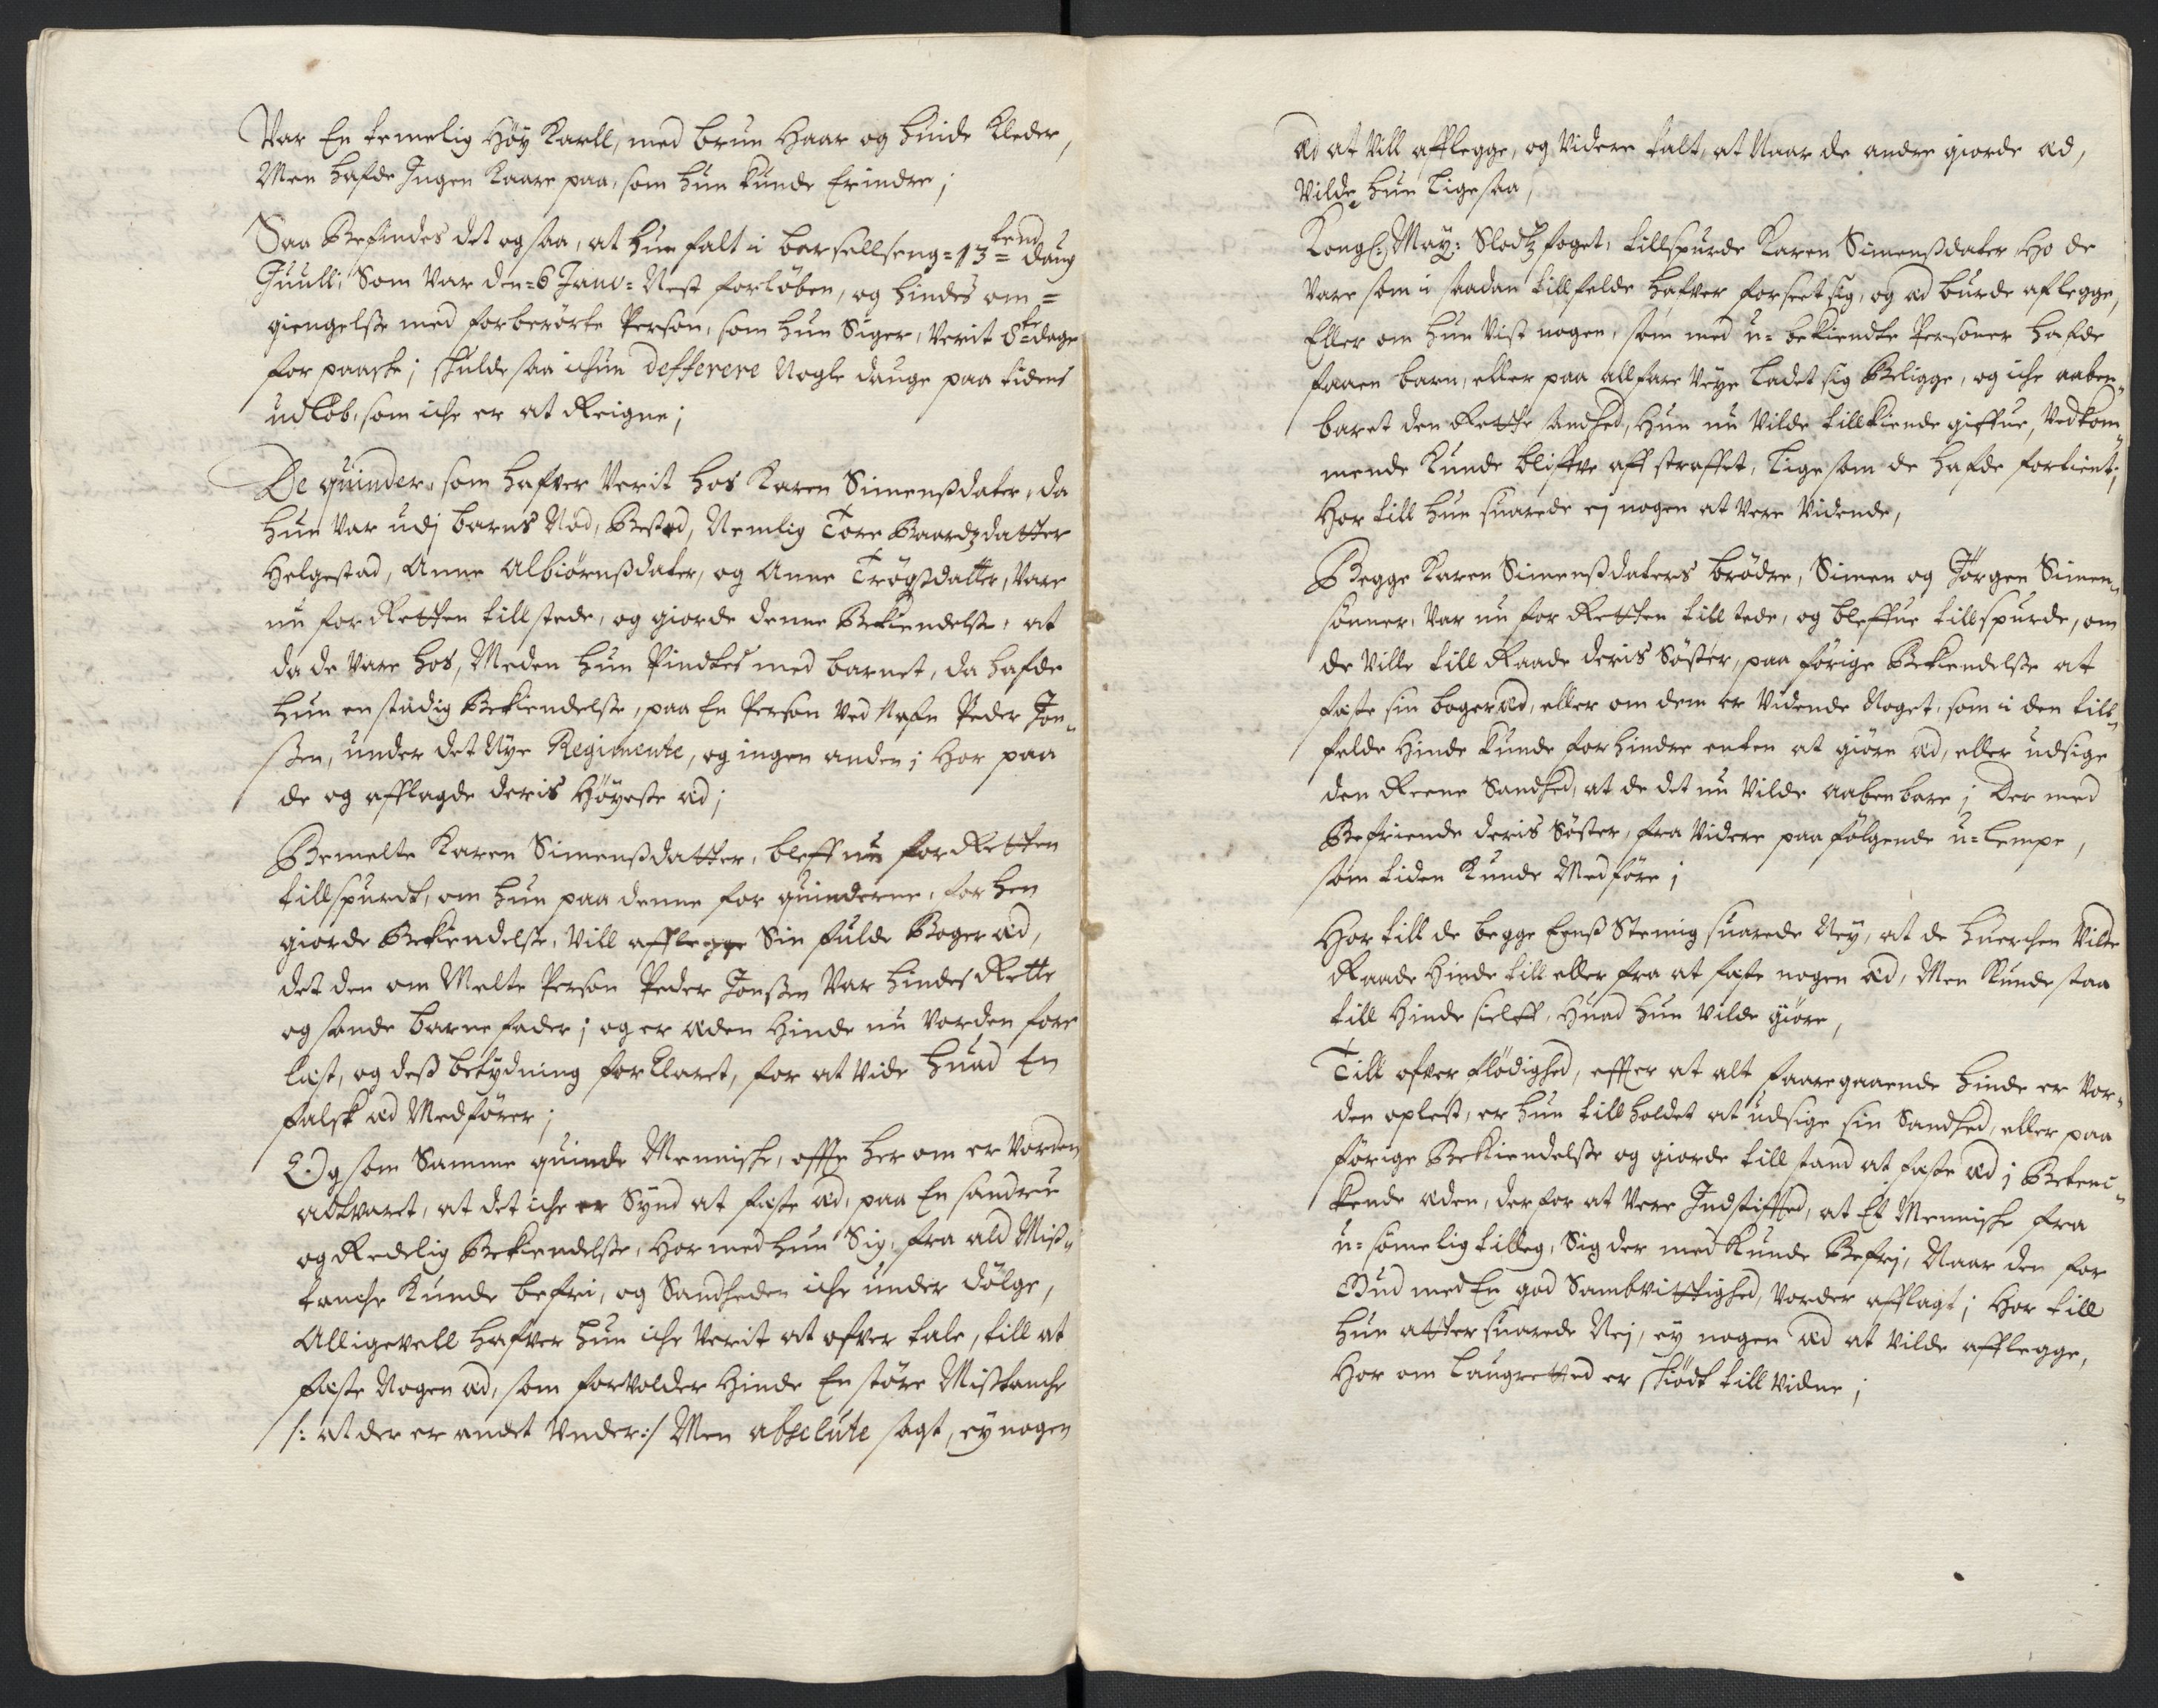 Var En temelig Høy Karll, med brun Haar og hvide Kleder,
Men hafde Ingen Kaare paa, som hun kunde Erindre;
Saa Befindes det ogsaa, at hun falt i barsellseng = 13tend= daug
Juull; Som Var den = 6 Janv= Nest forløben, og hindes om=
giengelsse med forberørte Person, som hun Siger, Verit 8te dage
for paaske; skulde saa ichun defferere Nogle dauge paa tidens
udløb, som iche er at Reigne;
De quinder, som hafver Verit hos Karen Simensdater, da
hun Var udj barns Nød, Bested, Nemlig Tore Baardzdatter
Helgestad, Anne Albiørnsdater, og Anne Trøgsdatter, Vare
nu for Retten till stede, og giorde denne Bekiendelsse, at
da de Vare hos, Meden hun Pindtes med barnet, da hafde
hun en stadig Bekiendelsse, paa En Person Ved Nafn Peder Jon„
ssen, under det Nye Regimente, og ingen anden; Hor paa
de og afflagde deris Høyeste æd;
Bemelte Karen Simensdatter, bleff nu for Retten
tillspurdt, om hun paa denne for quinderne, for hen
giorde Bekiendelsse, Vill afflegge Sin fulde Boger æd,
det den om Melte Person Peder Jonssen Var hindes Rette
og sande barne fader; og er æden Hinde nu Vorden fore
læst, og dess betydning forklaret, for at Vide huad En
falsk æd Medfører;
Og som Samme quinde Menniske, offte her om er Vorden
adtvaret, at det iche er Synd at faste æd, paa En sandru
og Redelig Bekiendelsse, Hor med hun Sig, fra ald Miss„
tanche kunde befri, og Sandheden iche under dølge,
Alligevell hafver hun iche Verit at ofver tale, till at
faste Nogen æd, som forvolder Hinde En støre Misstanche
/: At der er andet Under :/ Men absolute sagt, ey nogen
æd at Vill afflegge, og Videre talt, at Naar de andre giorde æd,
Vilde hun ligesaa,
Kongl: May: Slodtz foget, tillspurde Karen Simensdater Ho de
Vare som i saadan tillfelde hafver forseet sig, og æd burde aflegge,
Eller om hun Vist nogen, som med u-bekiendte Personer hafde
faaen barn, eller paa allfare Veye ladet sig Beligge, og iche aaben„
baret den Rette sandhed, Hun nu Vilde tillkiende giffue, Vedkom„
mende kunde bliffve aff straffet, lige som de hafde fortient;
Hor till hun suarede ej nogen at Vere Vidende,
Begge Karen Simensdaters brødre, Simen og Jørgen Simen„
sønner, Var nu for Retten till stede, og bleffue tillspurde, om
de Ville till Raade deris Søster, paa førige Bekiendelsse at
faste sin boger æd, eller om dem er Vidende Noget, som i den till„
felde Hinde kunde forhindre enten at giøre æd, eller udsige
den Reene Sandhed, at de det nu Vilde aabenbare; Der med
Befriende deris Søster, fra Videre paa følgende u-lempe,
som tiden kunde Medføre;
Hor till de begge Eens Stemig suarede Ney, at de huerchen Vilde
Raade Hinde till eller fra at faste nogen æd, Men kunde staa
till Hinde sielff, Huad hun Vilde giøre,
Till ofver flødighed, effter at alt faaregaaende hinde er Vor„
den oplest, er hun till holdet at udsige sin Sandhed, eller paa
førige Bekiendelsse og giorde till stand at faste æd; Betenc„
kende æden, der for at Vere Indstifted, at Et Menniske fra
u-sømelig tilleg, Sig der med kunde Befrj, Naar den for
Gud med En god Sambvittighed, Vorder afflagt; Hor till
hun atter suarede Nej, ey nogen æd at Vilde afflegge,
Hor om Laugretted er skiødt till Vidne;